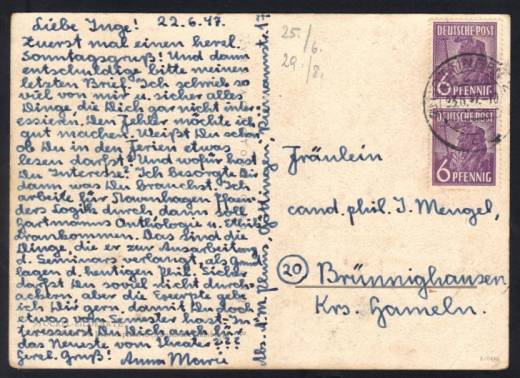 Liebe Inge! 22.6.47.
Zuerst mal einen herzl.
Sonntagsgruß! Und dann
entschuldige bitte meinen
letzten Brief. Ich schrieb so
viel von mir u. sicher alles
Dinge die Dich gar nicht inter-
essieren. Den Fehler möchte ich
gut machen. Weißt Du schon
ob Du in den Ferien etwas
lesen darfst? Und wofür hast
Du Interesse? Ich besorgte Dir
dann was Du brauchst. Ich
arbeite für Ravenhagen Pfän-
ders Logik durch, dann soll
Hartmanns Onthologie u. Ethik
drankommen. Das sind die
Dinge, die er zur Ausarbeitung
d. Seminars verlangt, als Grund-
lagen d. heutigen Phil. Sicher
darfst Du soviel nicht durch-
ackern, aber die Exzerpte gebe
ich Dir gern, damit Du doch
etwas vom Semester hast. In-
teressiert Du Dich auch für
das Neueste vom Theater???
Herzl. Gruß! Anna Marie
Abs. A. M. Göttingen,
25./6.
29./8.
DEUTSCHE POST
6 PFENNIG
DEUTSCHE POST
6 PFENNIG
Fräulein
cand. phil. I. Mengel,
20 Brünnighausen
Krs. Hameln.